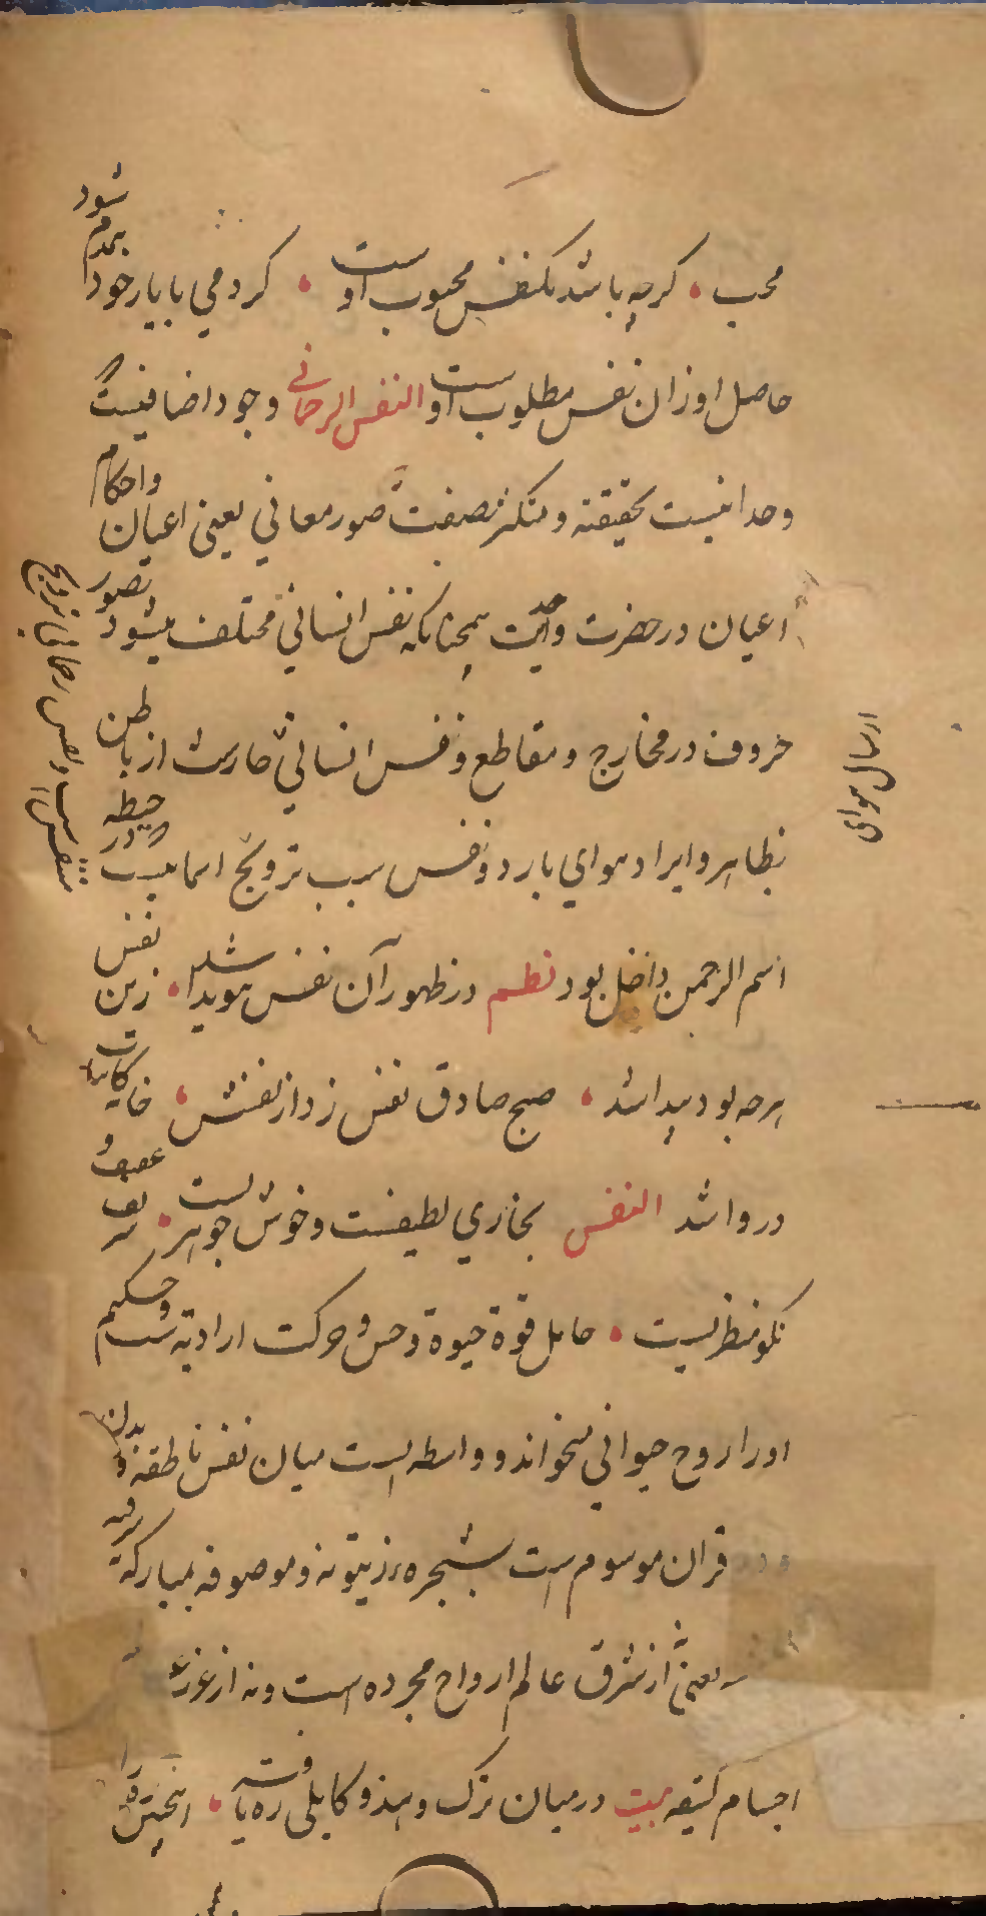 محب ، کرچه باشد یکنفس محبوب او است ، کر دمی با یار خود همدم شود
حاصل او زان نفس مطلوب او است النفس الرحمانی وجود اضافیست
وحدانیست بحقیقته و متکثر بصفت صور معانی یعنی اعیان و احکام
اعیان در حضرت واحدیت همچنانکه نفس انسانی مختلف میشود بصور
حروف در مخارج و مقاطع و نفس انسانی از باطن
بظاهر و ایراد هوای بارد و نفس سبب ترویح اسما در حیطه
اسم الرحمن داخل بود نظم در ظهور آن نفس هویدا شد ، زین نفس
هرچه بود پیدا شد ، صبح صادق نفس زد از نفسش ،
در وا شد النفس بخاری لطیفست و خوش جوهریست ،
نکو منظریست ، حامل قوة حیوة و حس و حرکت ارادیه است و حکیم
اورا روح حیوانی میخواند و واسطه است میان نفس ناطقه و بدن
قران موسوم است بشجره زیتونه و موصوفه بمبارکة
یعنی نه از شرق عالم ارواح مجرده است و نه از غرب
اجسام کثیفه بیت در میان ترک و هند و کابلی ره یافته ،
ارسال هوای